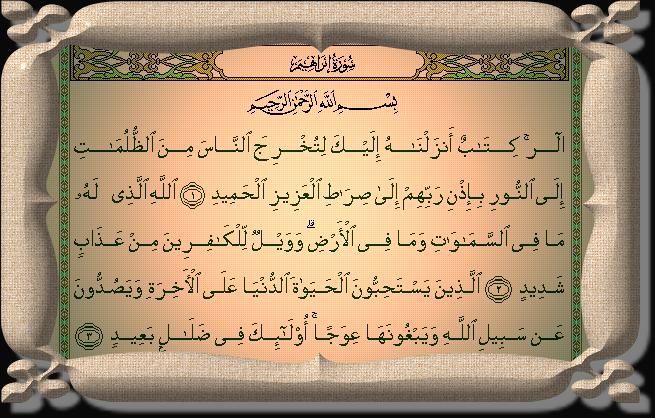 سُورَةُ إبراهيم
بِسْمِ اللَّهِ الرَّحْمَٰنِ الرَّحِيمِ
الٓر ۚ كِتَٰبٌ أَنزَلْنَٰهُ إِلَيْكَ لِتُخْرِجَ ٱلنَّاسَ مِنَ ٱلظُّلُمَٰتِ
إِلَى ٱلنُّورِ بِإِذْنِ رَبِّهِمْ إِلَىٰ صِرَٰطِ ٱلْعَزِيزِ ٱلْحَمِيدِ ١ ٱللَّهِ ٱلَّذِى لَهُۥ
مَا فِى ٱلسَّمَٰوَٰتِ وَمَا فِى ٱلْأَرْضِ ۗ وَوَيْلٌ لِّلْكَٰفِرِينَ مِنْ عَذَابٍ
شَدِيدٍ ٢ ٱلَّذِينَ يَسْتَحِبُّونَ ٱلْحَيَوٰةَ ٱلدُّنْيَا عَلَى ٱلْأَخِرَةِ وَيَصُدُّونَ
عَن سَبِيلِ ٱللَّهِ وَيَبْغُونَهَا عِوَجًا ۚ أُو۟لَٰٓئِكَ فِى ضَلَٰلٍ بَعِيدٍ ٣